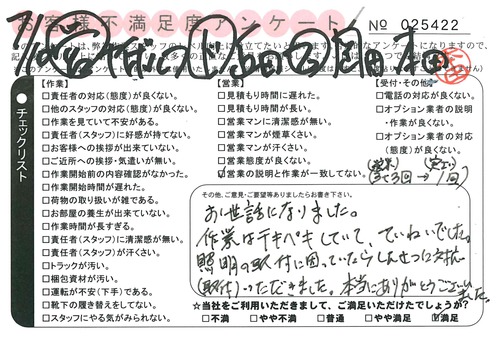 お客様不満足度アンケート
No 025422
チェックリスト
【作業】
□責任者の対応(態度)が良くない。
□他のスタッフの対応(態度)が良くない。
□作業を見ていて不安がある。
□責任者(スタッフ)に好感が持てない。
□お客様への挨拶が出来ていない。
□ご近所への挨拶・気遣いが無い。
□作業開始前の内容確認がなかった。
□作業開始時間が遅れた。
□荷物の取り扱いが雑である。
□お部屋の養生が出来ていない。
□作業時間が長すぎる。
□責任者(スタッフ)に清潔感が無い。
□責任者(スタッフ)が汗くさい。
□トラックが汚い。
□梱包資材が汚い。
□運転が不安(下手)である。
□靴下の履き替えをしてない。
□スタッフにやる気がみられない。
【営業】
□見積もり時間に遅れた。
□見積もり時間が長い。
□営業マンに清潔感が無い。
□営業マンが煙草くさい。
□営業マンが汗くさい。
□営業態度が良くない。
営業の説明と作業が一致してない。
【受付・その他】
□電話の対応が良くない。
□オプション業者の説明
・作業が良くない。
□オプション業者の対応
(態度)が良くない。
その他、ご意見・ご要望等ありましたらお書き下さい。
お世話になりました。
作業はテキパキしていて、ていねいでした。
照明の取付に困っていたらしんせつに対応
(取付)いただきました。本当にありがとうございました。
☆当社をご利用いただきまして、ご満足いただけたでしょうか?
□不満 □やや不満 □普通 □やや満足 満足